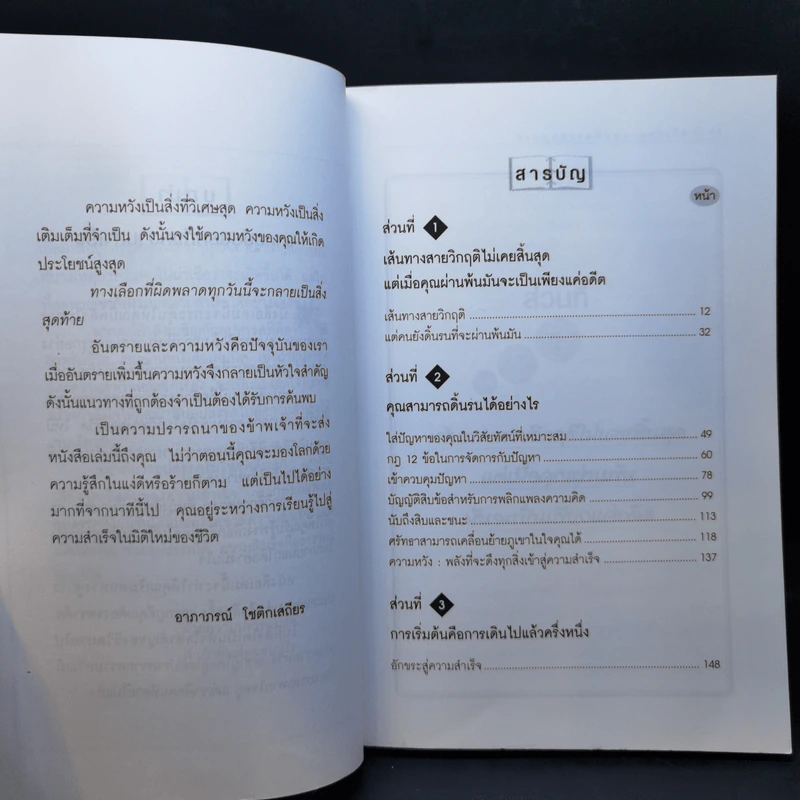 ความหวังเป็นสิ่งที่วิเศษสุด ความหวังเป็นสิ่ง
เติมเต็มที่จำเป็น ดังนั้นจงใช้ความหวังของคุณให้เกิด
ประโยชน์สูงสุด
ทางเลือกที่ผิดพลาดทุกวันนี้จะกลายเป็นสิ่ง
สุดท้าย
อันตรายและความหวังคือปัจจุบันของเรา
เมื่ออันตรายเพิ่มขึ้นความหวังจึงกลายเป็นหัวใจสำคัญ
ดังนั้นแนวทางที่ถูกต้องจำเป็นต้องได้รับการค้นพบ
เป็นความปรารถนาของข้าพเจ้าที่จะส่ง
หนังสือเล่มนี้ถึงคุณ ไม่ว่าตอนนี้คุณจะมองโลกด้วย
ความรู้สึกในแง่ดีหรือร้ายก็ตาม แต่เป็นไปได้อย่าง
มากที่จากนาทีนี้ไป คุณอยู่ระหว่างการเรียนรู้ไปสู่
ความสำเร็จในมิติใหม่ของชีวิต
อาภาภรณ์ โชติกเสถียร
สารบัญ
หน้า
ส่วนที่ 1
เส้นทางสายวิกฤติไม่เคยสิ้นสุด
แต่เมื่อคุณผ่านพ้นมันจะเป็นเพียงแค่อดีต
เส้นทางสายวิกฤติ 12
แต่คนยังดิ้นรนที่จะผ่านพ้นมัน 32
ส่วนที่ 2
คุณสามารถดิ้นรนได้อย่างไร
ใส่ปัญหาของคุณในวิสัยทัศน์ที่เหมาะสม 49
กฎ 12 ข้อในการจัดการกับปัญหา 60
เข้าควบคุมปัญหา 78
บัญญัติสิบข้อสำหรับการพลิกแพลงความคิด 99
นับถึงสิบและชนะ 113
ศรัทธาสามารถเคลื่อนย้ายภูเขาในใจคุณได้ 118
ความหวัง : พลังที่จะดึงทุกสิ่งเข้าสู่ความสำเร็จ 137
ส่วนที่ 3
การเริ่มต้นคือการเดินไปแล้วครึ่งหนึ่ง
อักขระสู่ความสำเร็จ 148